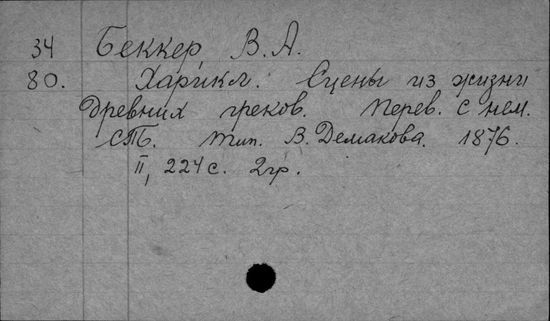 34 Беккер В. А.
80. Харикл. Сцены из жизни
древних греков. Перев. с нем.
СПБ. Тип. В. Демакова. 1876.
II, 224 с. 2 гр.